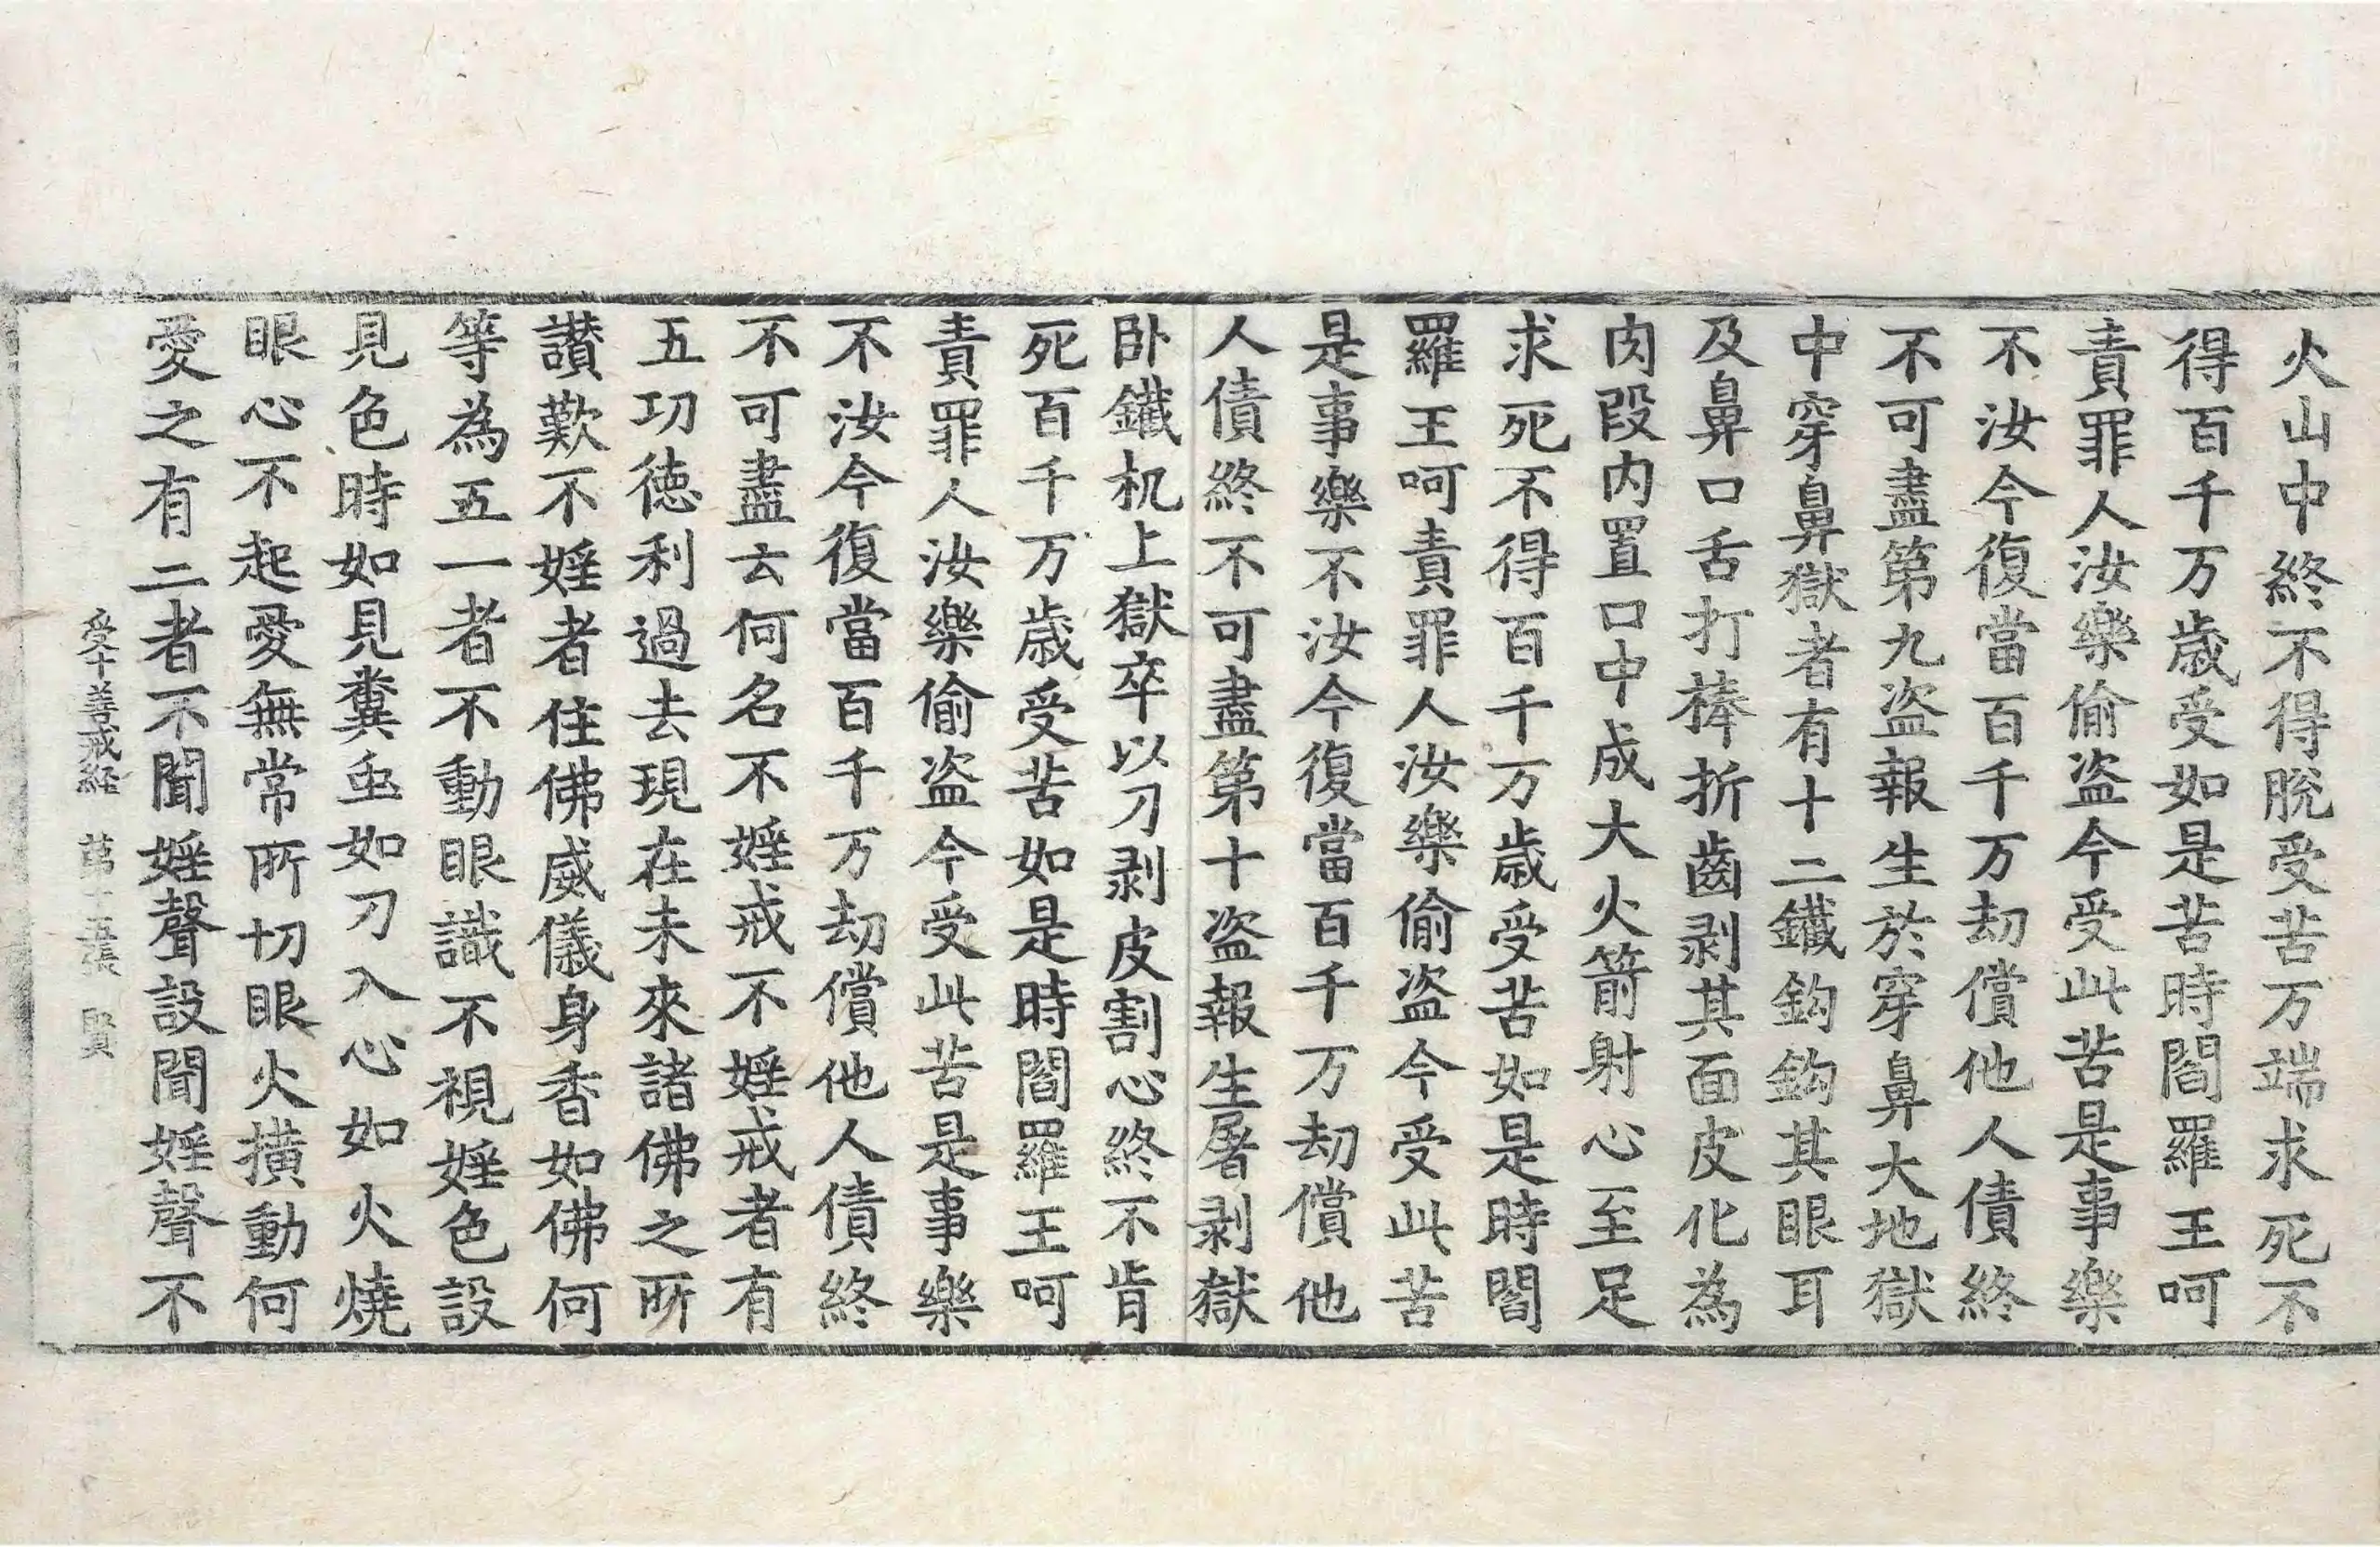 火山中終不得脫受苦万端求死不
得百千万歲受如是苦時閻羅王呵
責罪人汝樂偷盜今受此苦是事樂
不汝今復當百千万劫償他人債終
不可盡第九盜報生於穿鼻大地獄
中穿鼻獄者有十二鐵鉤鉤其眼耳
及鼻口舌打棒折齒剥其面皮化為
肉段内置口中成大火箭射心至足
求死不得百千万歲受苦如是時閻
羅王呵責罪人汝樂偷盜今受此苦
是事樂不汝今復當百千万劫償他
人債終不可盡第十盜報生屠剥獄
卧鐵机上獄卒以刀剥皮割心終不肯
死百千万歲受苦如是時閻羅王呵
責罪人汝樂偷盜今受此苦是事樂
不汝今復當百千万劫償他人債終
不可盡云何名不婬戒不婬戒者有
五功徳利過去現在未來諸佛之所
讃歎不婬者住佛威儀身香如佛何
等為五一者不動眼識不視婬色設
見色時如見糞䖝如刀入心如火燒
眼心不起愛無常所切眼火横動何
愛之有二者不聞婬聲設聞婬聲不
受十善戒經 第十五張 賢